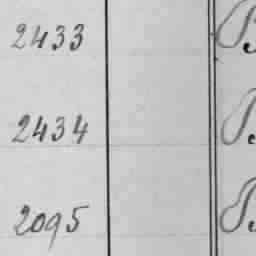 2433
2434
2095